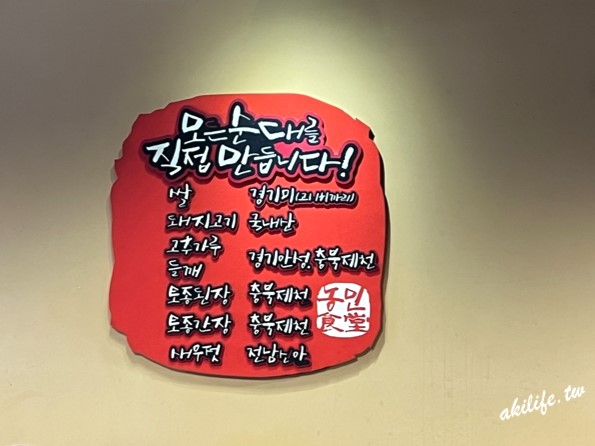 모든순대를
직접 만듭니다!
쌀 경기미
돼지고기 국내산
고추가루
들깨 경기안성, 충북제천
토종된장 충북제천
토종간장 충북제천
새우젓 전남신안
농민
食堂
akilife.tw